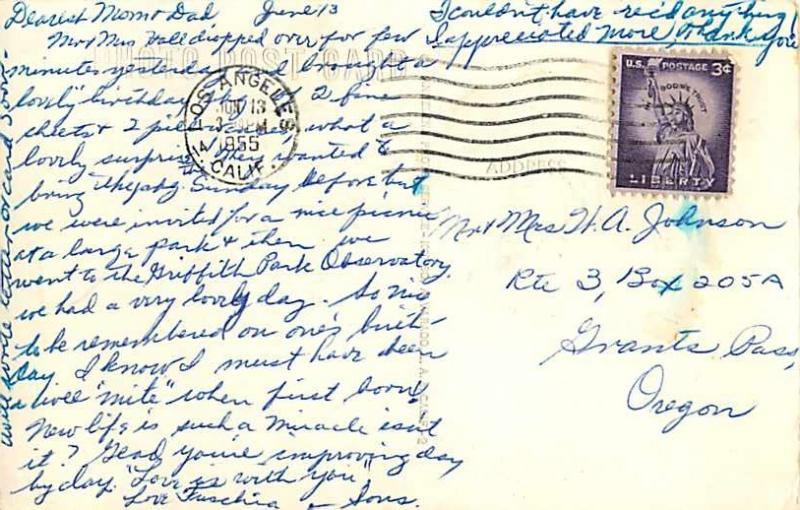 Dearest Mom & Dad June 13
Mr & Mrs Vall dropped over for few
minutes yesterday & brought a
lovely birthday 2 fine
sheets & 2 pillow what a
lovely surprise They wanted to
bring the pkg. Sunday before but
we were invited for a nice picnic
at a large park & then we
went to the Griffith Park Observatory.
we had a very lovely day. So nice
to be remembered on one's birth-
day. I know I must have been
a wee "mite" when first born.
New life is such a miracle isn't
it? Glad you're improving day
by day. "Love is with you"
Love Fuschia & Sons.
I couldn't have rec'd anything
I appreciated more, Thank you
will write letter or card soon.
PHOTO POST CARD
ADDRESS
LOS ANGELES
JUN 13
PM
1955
CALIF.
U.S. POSTAGE 3¢
IN GOD WE TRUST
LIBERTY
Mr & Mrs H. A. Johnson
Rte 3, Box 205A
Grants Pass,
Oregon